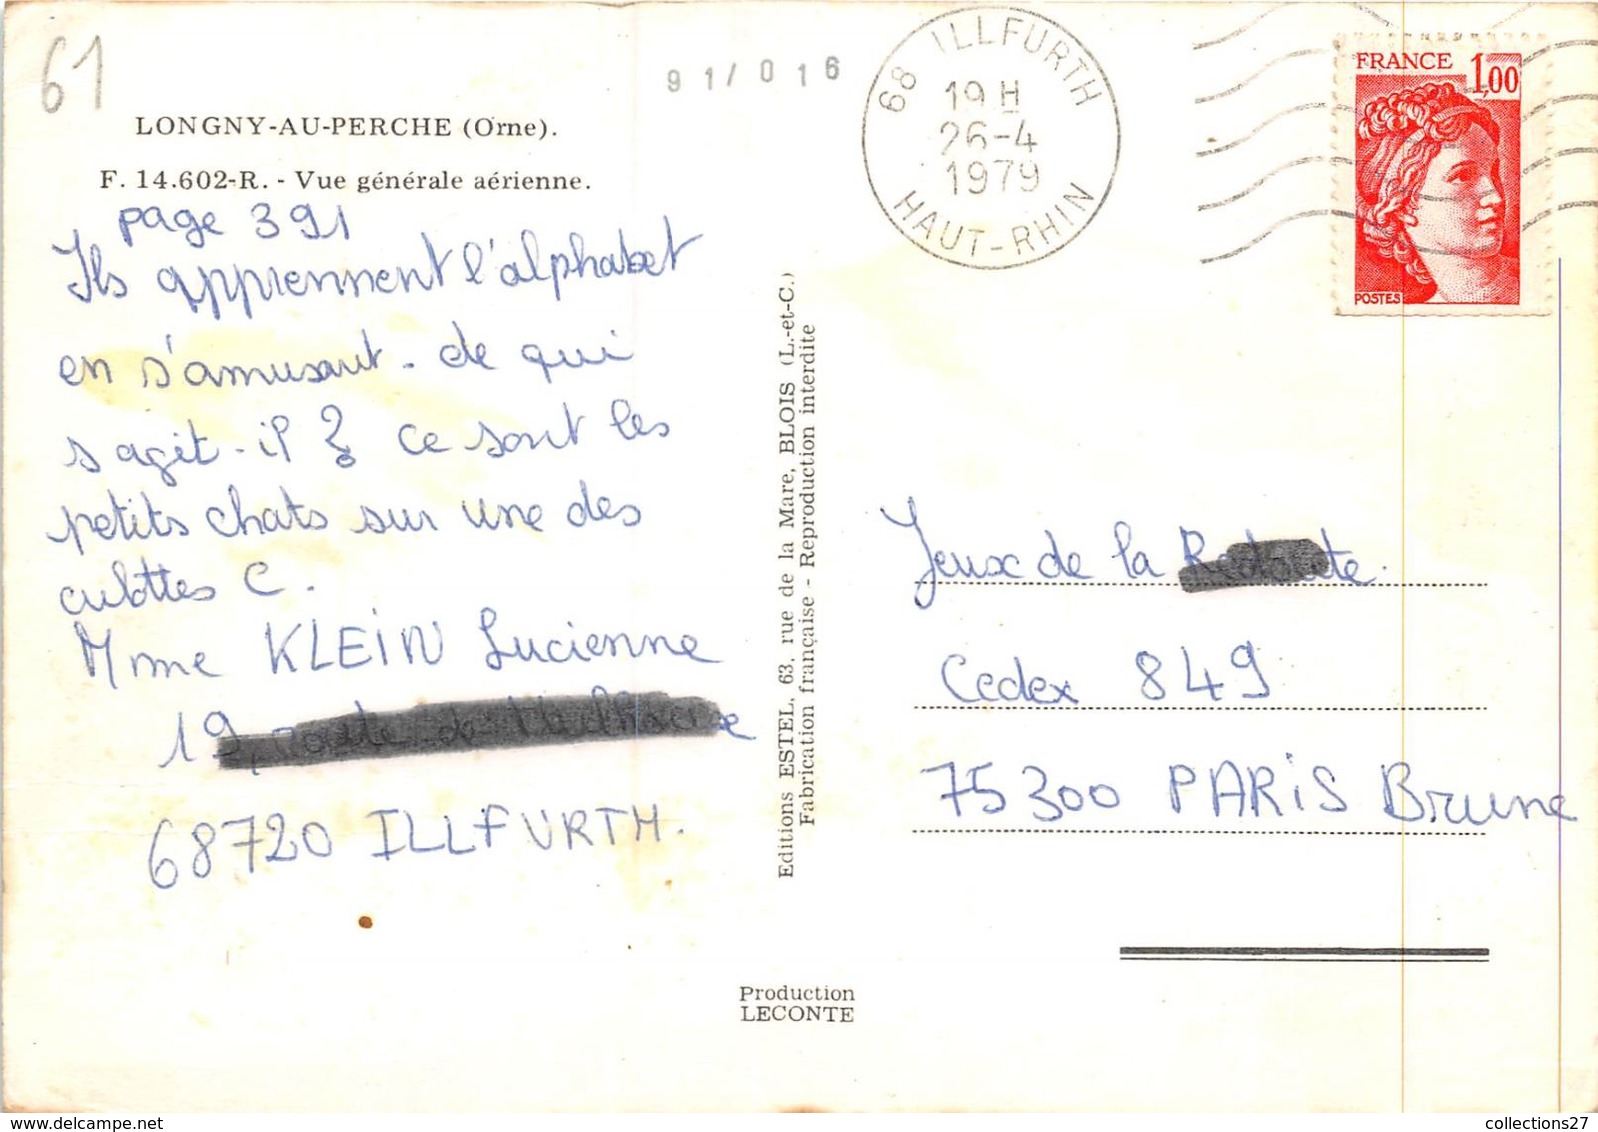 61
91/016
LONGNY-AU-PERCHE (Orne).
F. 14.602-R. - Vue générale aérienne.
page 391
Ils apprennent l'alphabet
en s'amusant. de qui
s'agit-il ? ce sont les
petits chats sur une des
culottes C.
Mme KLEIN Lucienne
19,
68720 ILLFURTH.
Editions ESTEL, 63, rue de la Mare, BLOIS (L.-et-C.)
Fabrication française - Reproduction interdite
Production
LECONTE
68 ILLFURTH
19 H
26-4
1979
HAUT-RHIN
FRANCE 1,00
POSTES
Jeux de la
Cedex 849
75300 PARIS Brune
collections27